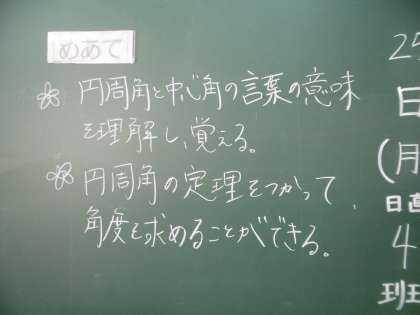 めあて
☆ 円周角と中心角の言葉の意味
を理解し、覚える。
☆ 円周角の定理をつかって
角度を求めることができる。
25
日
(月
日直
4
班